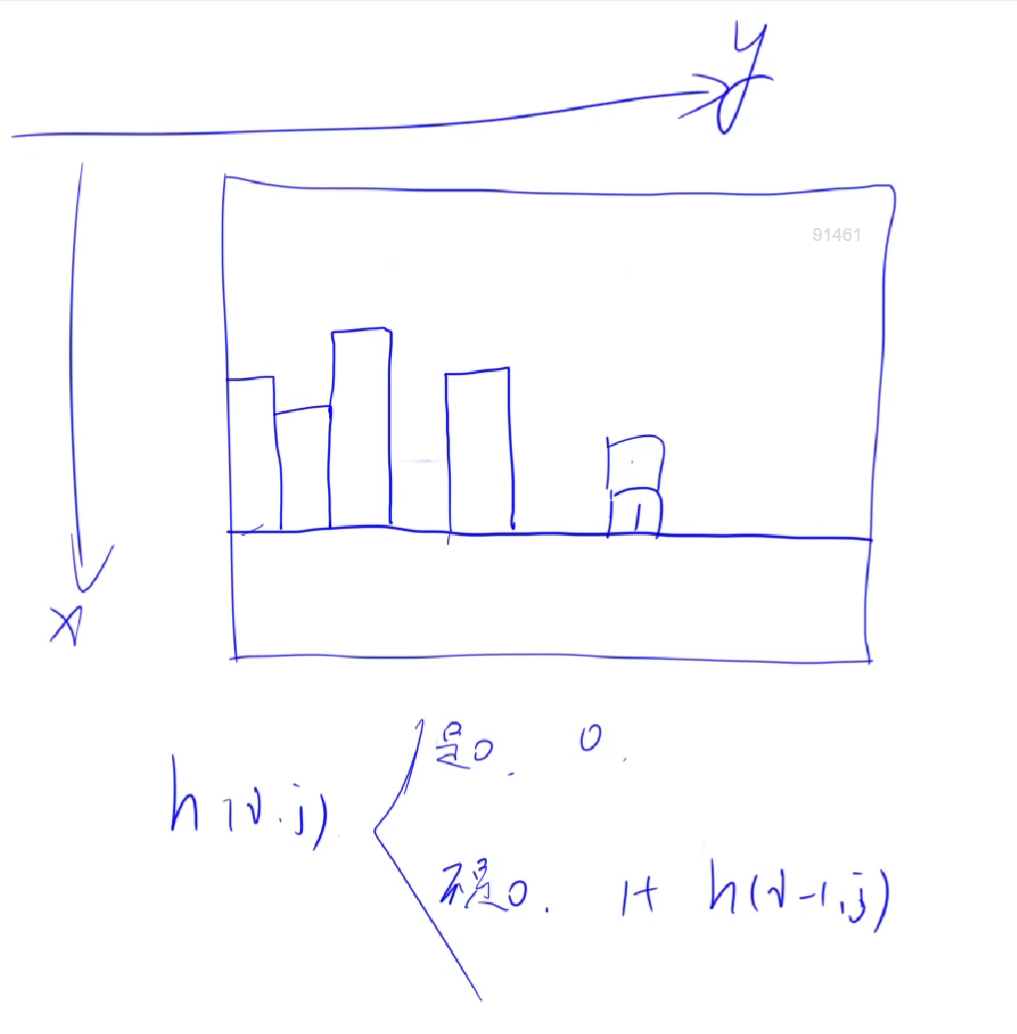 y
91461
1
x
h(i,j) { 是0. 0.
不是0. 1+ h(i-1,j)